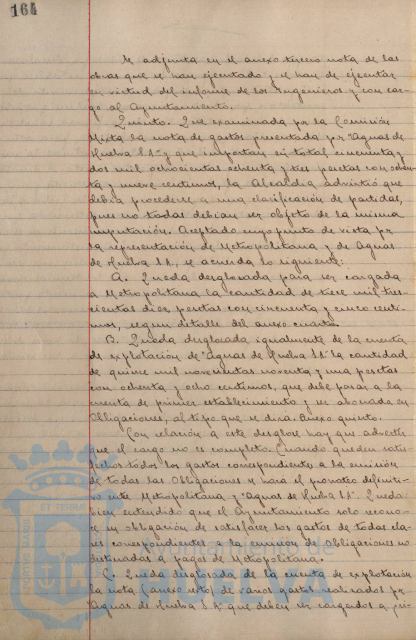 164
Se adjunta en el anexo tercero nota de las
obras que se han ejecutado y se han de ejecutar
en virtud del informe de los Ingenieros y con car-
go al Ayuntamiento.
Quinto. Que examinada por la Comisión
Mixta la nota de gastos presentada por "Aguas de
Huelva S.A." y que importan en total cincuenta y
dos mil ochocientas ochenta y tres pesetas con ochen-
ta y nueve centimos, la Alcaldía advirtió que
debía procederse a una clasificación de partidas,
pues no todas debían ser objeto de la misma
imputación. Aceptado cuyo punto de vista por
la representación de Metropolitana y de Aguas
de Huelva S.A., se acuerda lo siguiente:
A. Queda desglosada para ser cargada
a Metropolitana la cantidad de trece mil tres-
cientas diez pesetas con cincuenta y cinco centi-
mos, segun detalle del anexo cuarto.
B. Queda desglosada igualmente de la cuenta
de explotación de "Aguas de Huelva S.A." la cantidad
de quince mil novecientas noventa y una pesetas
con ochenta y ocho centimos, que debe pasar a la
cuenta de primer establecimiento y ser abonada en
Obligaciones, al tipo que se dirá. Anexo quinto.
Con relación a este desglose hay que advertir
que el cargo no es completo. Cuando queden satis-
fechos todos los gastos correspondientes a la emisión
de todas las Obligaciones se hará el prorrateo definiti-
vo entre Metropolitana y "Aguas de Huelva S.A". Queda
bien entendido que el Ayuntamiento solo recono-
ce su obligación de satisfacer los gastos de todas cla-
ses correspondientes a la emisión de Obligaciones no
destinadas a pagos de Metropolitana.
C. Queda desglosada de la cuenta de explotación
la nota (anexo sexto) de varios gastos realizados por
"Aguas de Huelva S.A." que deben ser cargados a pri-
Ayuntamiento de